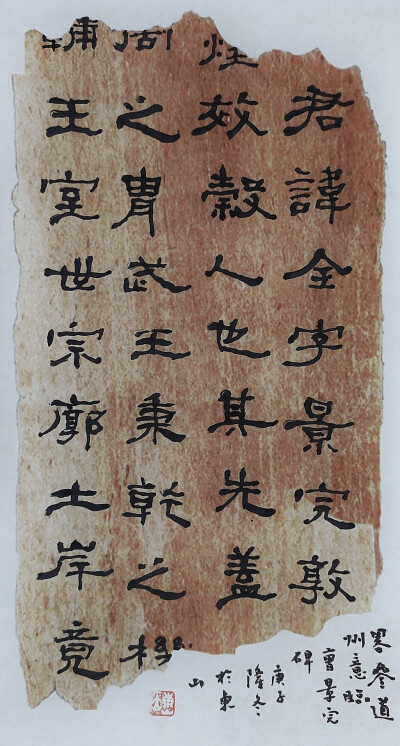 君諱全字景完敦
煌效穀人也其先蓋
周之胄武王秉乾之機
輔王室世宗廓土岸竟
道
州意臨
曹景完
碑
庚子
隆冬
於東
山